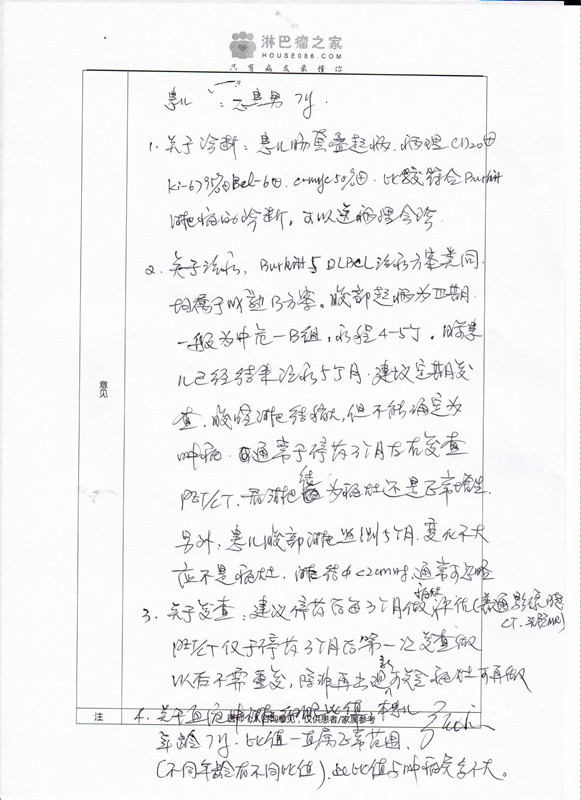 淋巴瘤之家
HOUSE086.COM
只有病友最懂你
患儿 : 男 7y.
1. 关于诊断: 患儿肠套叠起病, 病理CD20⊕
Ki-67 95%⊕ Bcl-6⊕. c-myc 50%⊕. 比较符合Burkitt
淋巴瘤的诊断, 可以送病理会诊.
2. 关于治疗, Burkitt与DLBCL治疗方案类同.
均属于成熟B方案。腹部起病为Ⅲ期.
一般为中危-B组, 疗程4-5个. 目前患
儿已经结束治疗5个月. 建议定期复
查. 腹腔淋巴结稍大, 但不能确定为
肿瘤. 通常于停药3个月左右复查
PET/CT. 看淋巴结为病灶还是正常增生.
另外, 患儿腹部淋巴 5个月. 变化不大
应不是病灶. 淋巴结 <2cm时, 通常可忽略
3. 关于复查: 建议停药后每3个月做病灶评估(普通影像
CT. 或MR)
PET/CT仅于停药3个月后第一次复查做
以后不需重复, 除非再出现新可疑病灶可再做
意见
注
供患者/家属参考
4. 关于血 比值 本患儿
年龄7y. 比值一直属正常范围.
(不同年龄有不同比值), 此比值与肿瘤关系不大。